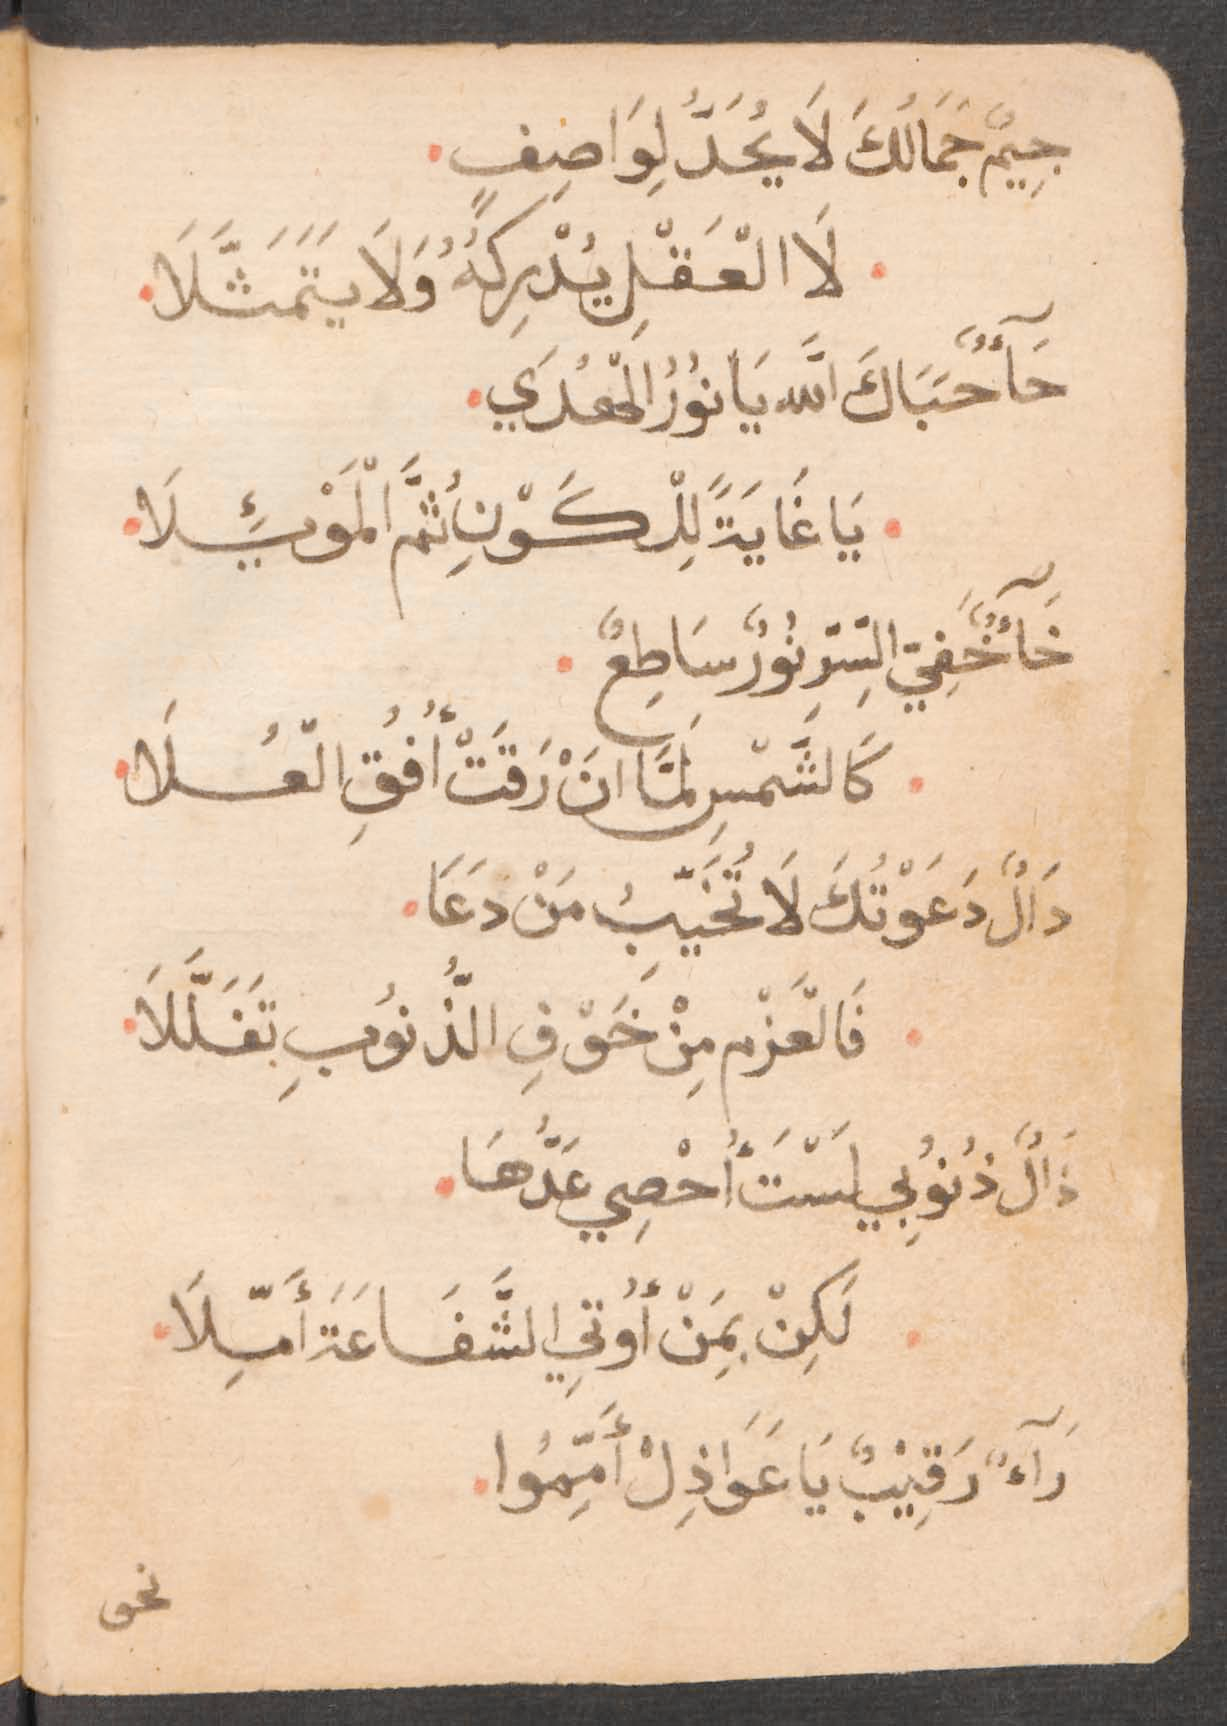 جِيمٌ جَمَالُكَ لَا يُحَدُّ لِوَاصِفٍ
لَا الْعَقْلِ يُدْرِكُهُ وَلَا يَتَمَثَّلَا
حَآءٌ حَبَاكَ اللَّه يَا نُوْرُ الْهُدَي
يَا غَايَةً لِلْكَوْنِ ثُمَّ الْمَوْئِلَا
خَآءٌ خَفِيّ السِّرِّ نُوْرٌ سَاطِعٌ
كَالشَّمْسِ لَمَّا انْ رَقَتْ أُفُقِ الْعُلَا
دَالٌ دَعَوْتُكَ لَا تُخَيِّبُ مَنْ دَعَا
فَالْعَزْم مِنْ خَوْفِ الذُّنُوبِ تَفَلَّلَا
ذَالٌ ذُنُوْبِي لَسْتَ أُحْصِي عَدُّهَا
لَكِنْ بِمَنْ أُوْتِي الشَّفَاعَةَ أَمِّلَا
رَآءٌ رَقِيْبٌ يَا عَوَاذِلْ أَمِّمُوا
نحو